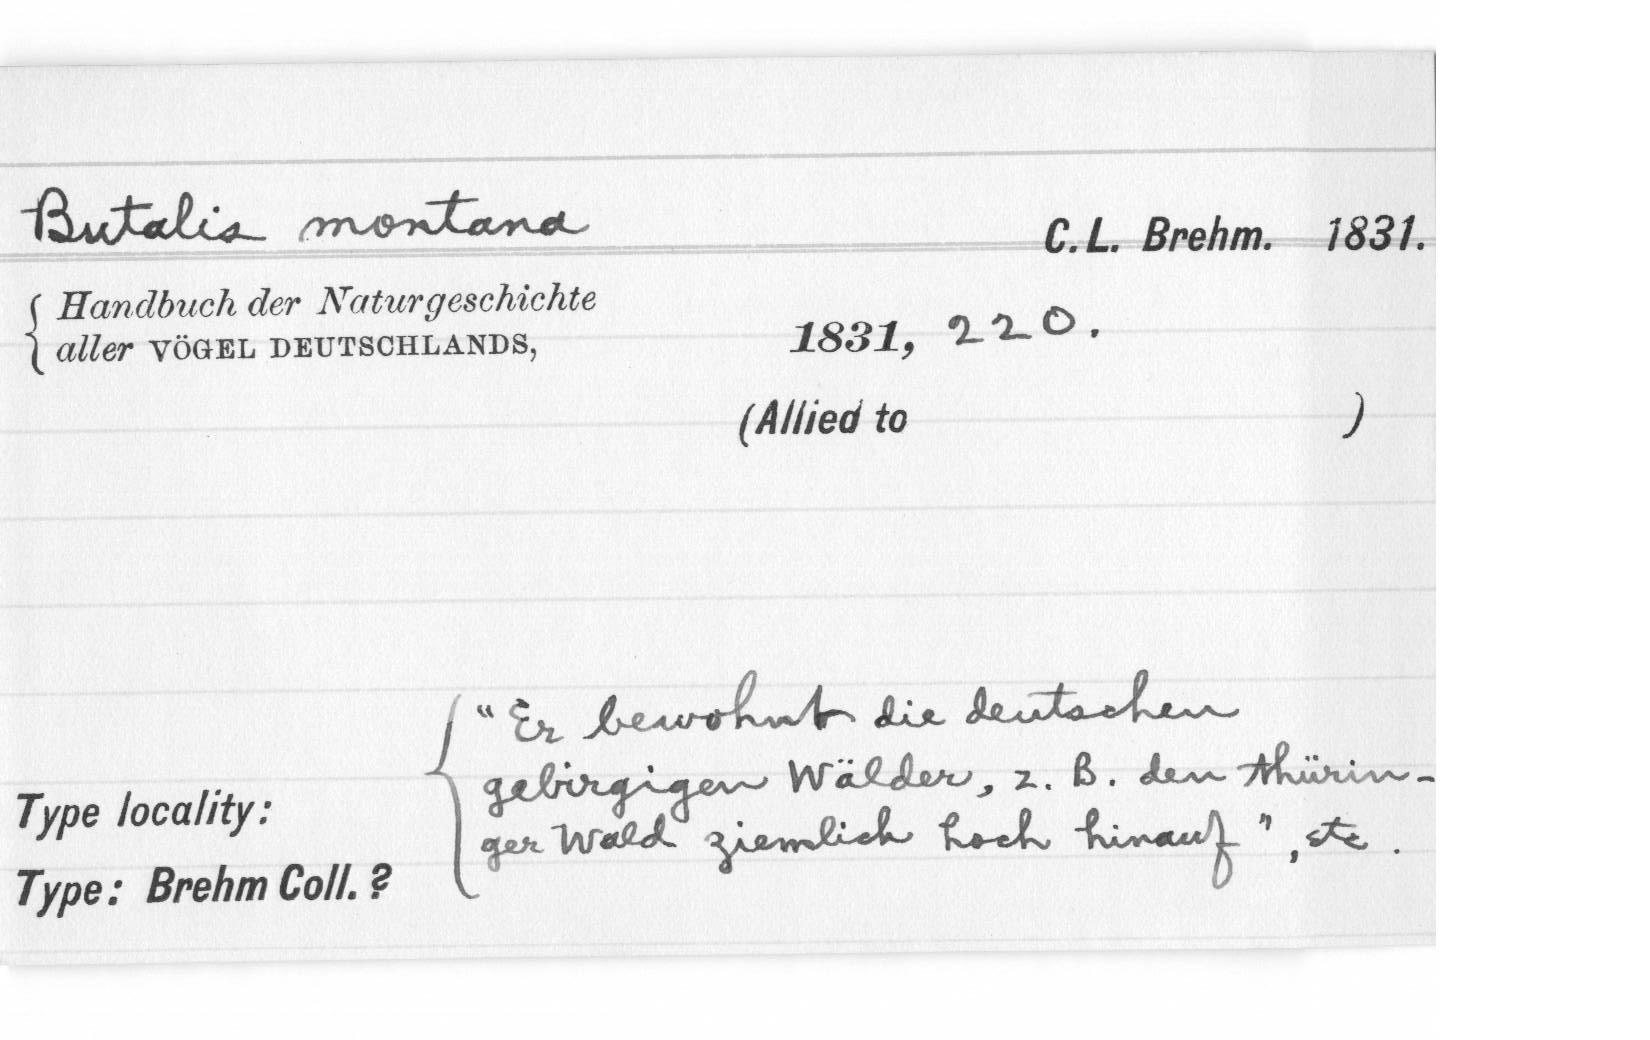 Butalis montana C.L. Brehm. 1831.
Handbuch der Naturgeschichte
aller VÖGEL DEUTSCHLANDS, 1831, 220.
(Allied to )
"Er bewohnt die deutschen
gebirgigen Wälder, z. B. den Thürin-
Type locality: ger Wald ziemlich hoch hinauf", etc.
Type: Brehm Coll. ?